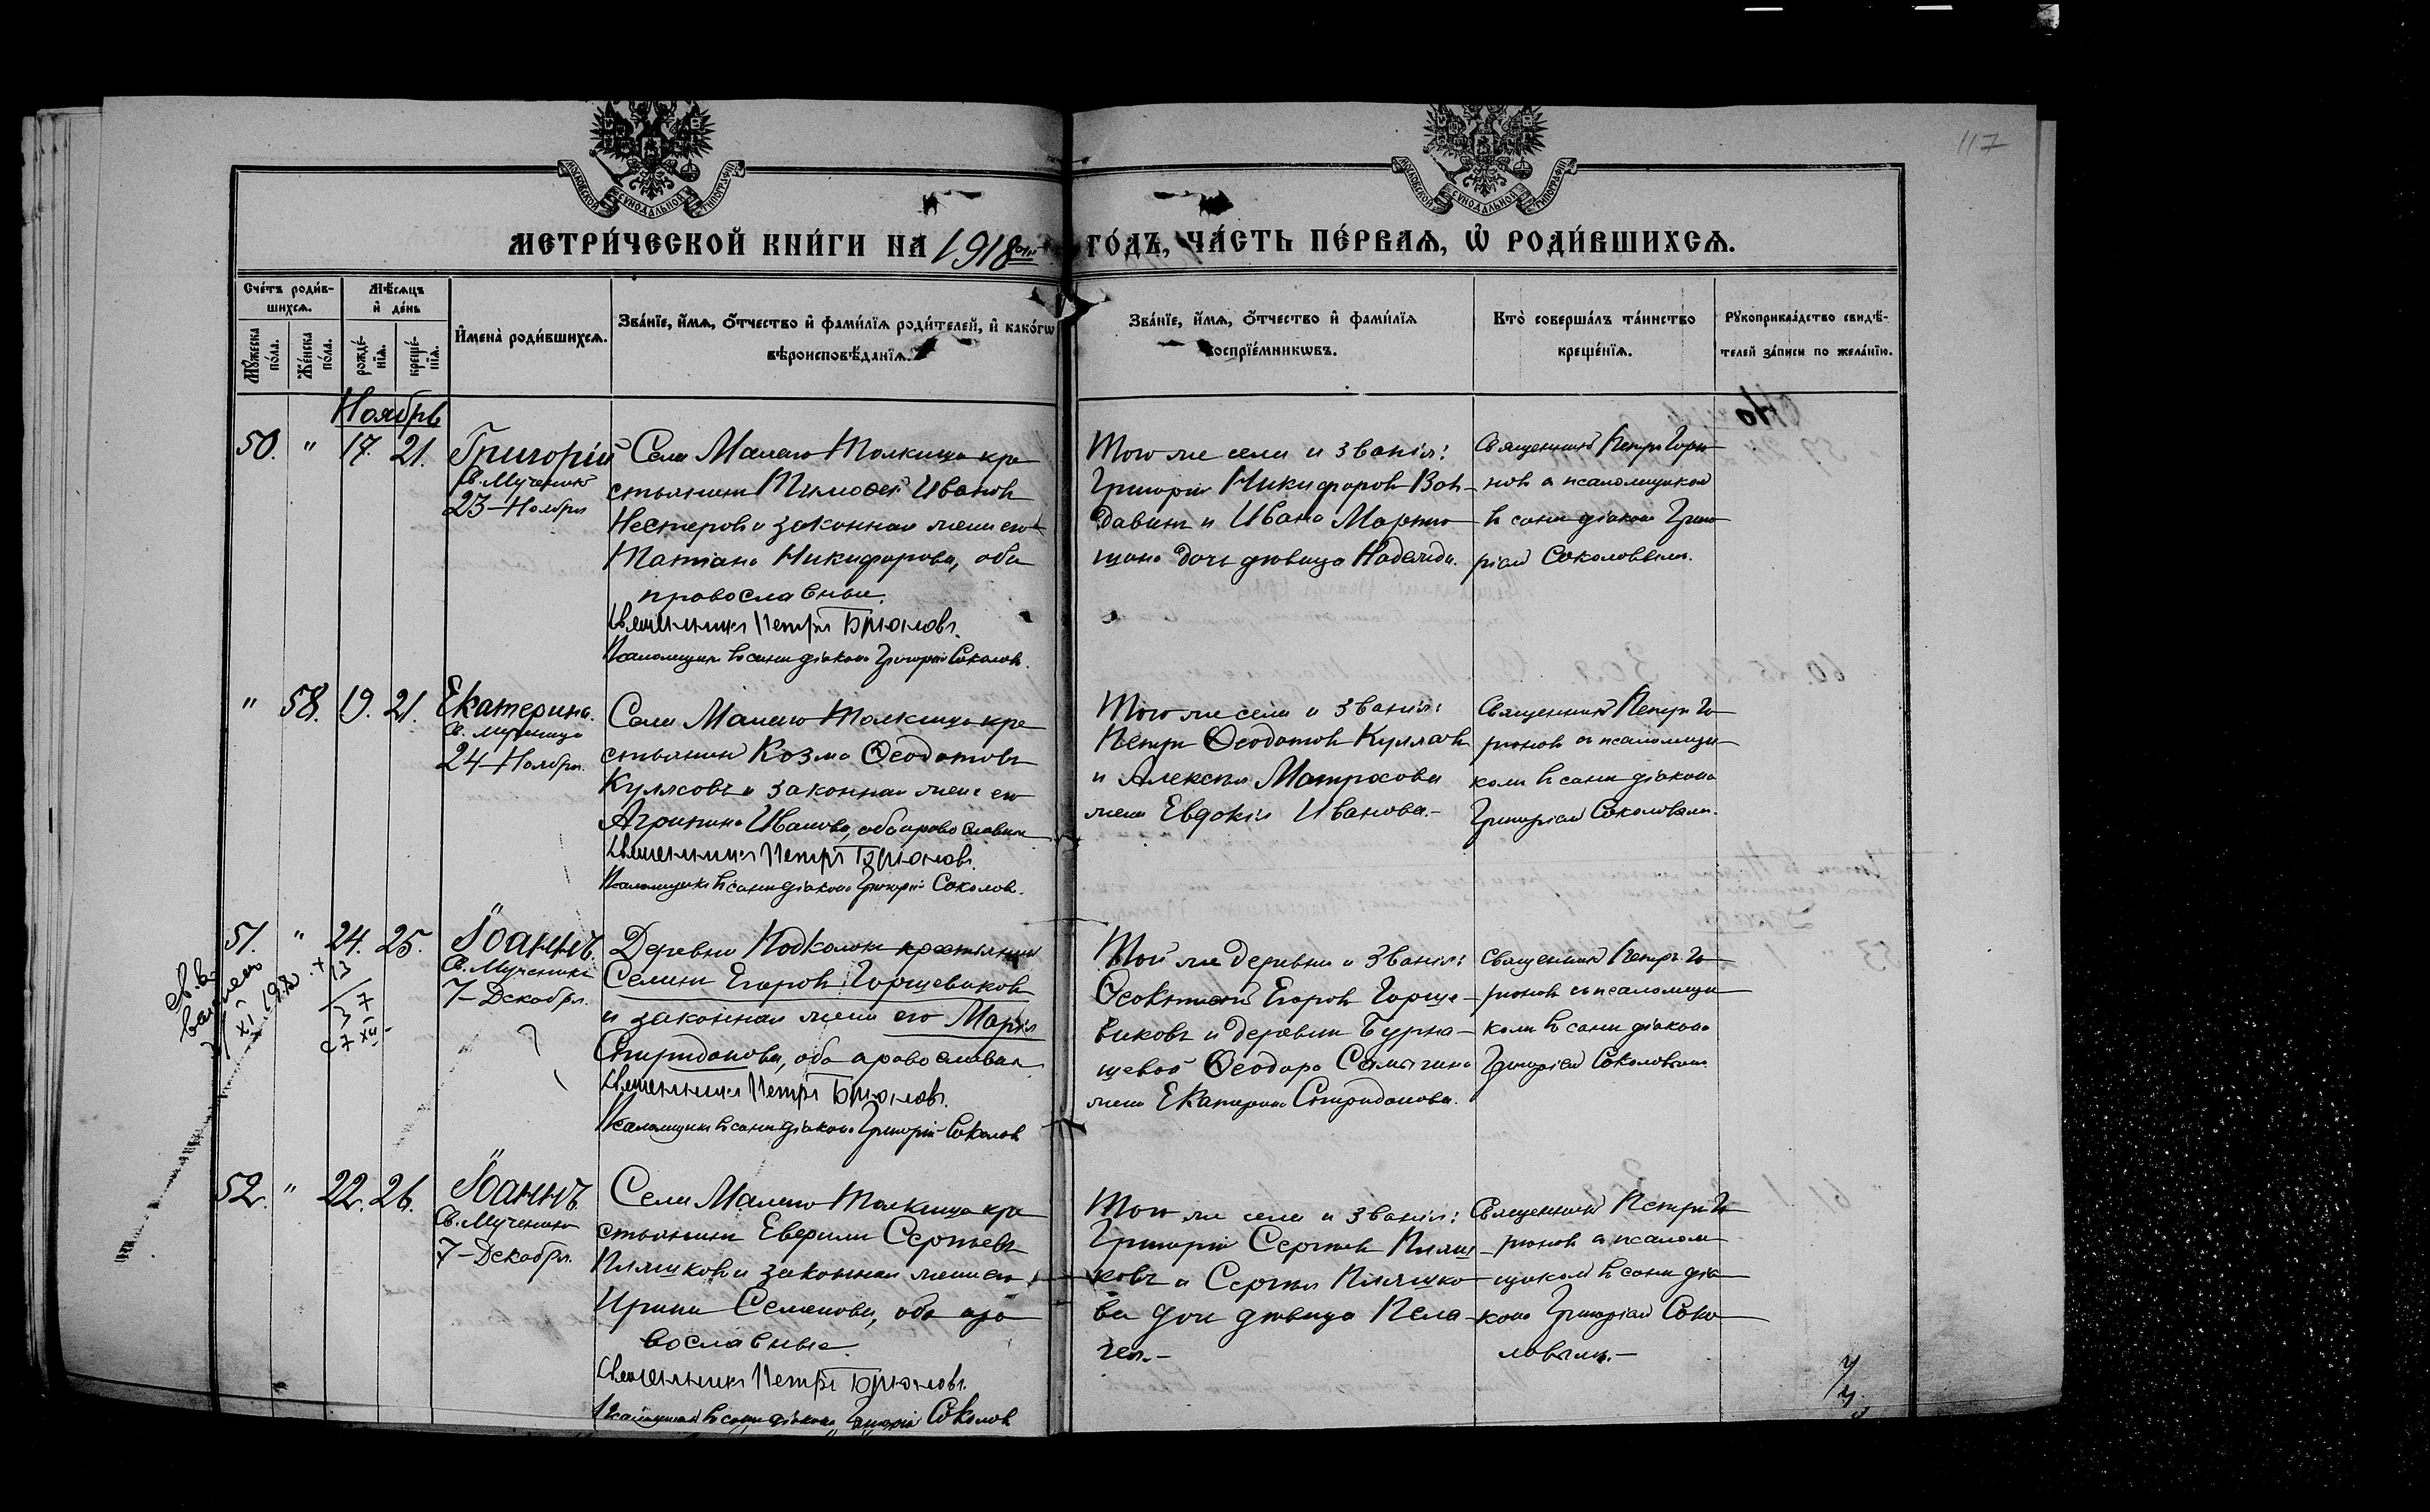 117
МОСКОВСКОЙ СѴНОДАЛЬНОЙ ТИПОГРАФІИ
МОСКОВСКОЙ СѴНОДАЛЬНОЙ ТИПОГРАФІИ
МЕТРИ́ЧЕСКОЙ КНИ́ГИ НА 1918 ГО́ДЪ, ЧА́СТЬ ПЕ́РВАѦ, Ѡ РОДИ́ВШИХСѦ.
Сче́тъ роди́в-
шихсѧ.
Мѣ́сѧцъ
и҆ де́нь
Мꙋ́жеска по́ла.
Же́нска по́ла.
рожде́-
нїѧ.
креще́-
нїѧ.
И҆мена̀ роди́вшихсѧ.
Зва́нїе, и҆́мѧ, ѻ҆́тчество и҆ фами́лїѧ роди́телей, и҆ како́гѡ
вѣроисповѣ́данїѧ.
Зва́нїе, и҆́мѧ, ѻ҆́тчество и҆ фами́лїѧ
воспрїе́мникѡвъ.
Кто̀ соверша́лъ та́инство
креще́нїѧ.
Рꙋкоприкла́дство свидѣ́-
телей за́писи по жела́нїю.
Ноябрь
50. " 17. 21. Григорій
Св. Мученик
23 Ноября
Села Малаго Толкиша кре
стьянин Тимоѳей Иванов
Нестеров и законная жена его
Татіана Никифорова, оба
православные.
Священникъ Петръ
Псаломщик в сане діакона Григорій Соколов.
Того же села и званія:
Григорій Никифоров Вон
давин и Ивана
дочь девица Надежда.
Священник Петр
нов с псаломщиком
в сане діакона Григо
ріем Соколовым.
" 58. 19. 21. Екатерина.
Св. мученица
24 Ноября.
Села Малаго Толкиша кре
стьянин Козма Ѳеодотовъ
Кулясовъ и законная жена его
Агрипина Иванова, оба православные
Священникъ Петръ
Псаломщик в сане діакона Григорій Соколов.
Того же села и званія:
Петр Ѳеодотов Кулясов
и Алексея Матросова
жена Евдокія Иванова.
Священник Петр
с псаломщи
ком в сане діакона
Григоріем Соколовым.
51. " 24. 25. Іоаннъ.
Св. Мученик
7 Декабря.
Деревни Подкалок крестьянин
Семен Егоров Горшевиков
и законная жена его Марія
Спиридонова, оба православные
Священникъ Петръ
Псаломщик в сане діакона Григорій Соколов
Той же деревни и званія:
Ѳеоктист Егоров Горше
виковъ и деревни Бурна
шевой Ѳеодора Самыгина
жена Екатерина Спиридонова.
Священник Петр
с псаломщи
ком в сане діакона
Григоріем Соколовым
52. " 22. 26. Іоаннъ.
Св. Мученик
7 Декабря.
Села Малаго Толкиша кре
стьянин Сергеев
Пляшков и законная жена его
Ирина Семенова, оба пра
вославные.
Священникъ Петръ
Псаломщик в сане діакона Григорій Соколов
Того же села и званія:
Григорій Сергеев Пляш
ковъ и Сергея Пляшко
ва дочь девица Пела
гея.
Священник Петр
с псалом
щиком в сане діа
кона Григоріем Соко
ловым.